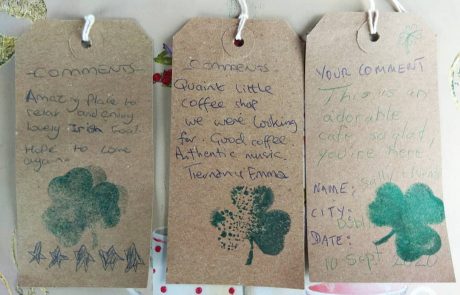 - COMMENTS -
Amazing Place to
relax and enjoy
lovely Irish food
Hope to come
again
COMMENTS -
Quaint little
coffee shop
we were looking
for. Good coffee.
Authentic music.
Tiernan / Emma
YOUR COMMENT
This is an
adorable
cafe, so glad
you're here
NAME: Sally
CITY:
DATE:
10 Sept 2020